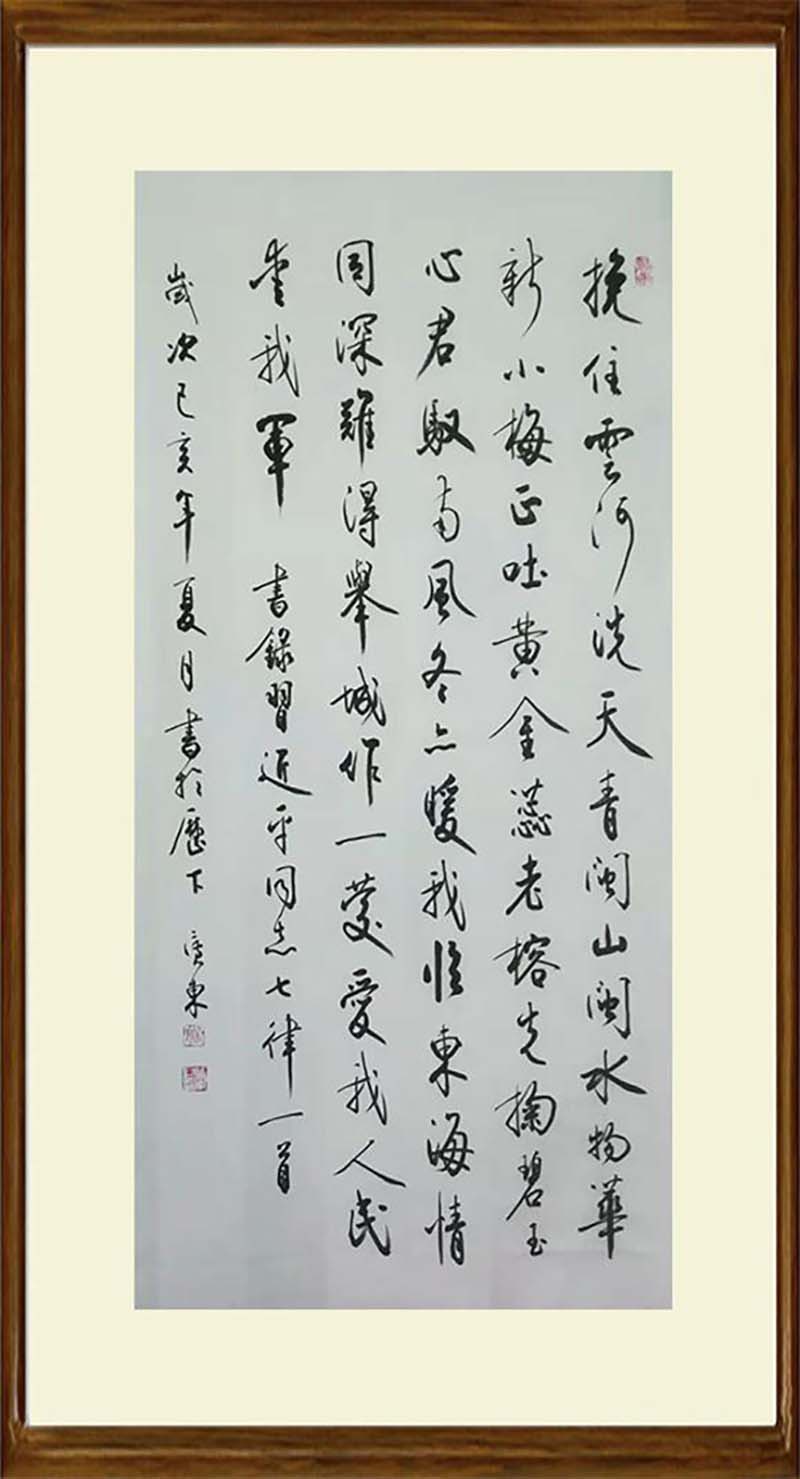 挽住雲河洗天青閩山閩水物華
新小梅正吐黄金蕊老榕先掬碧玉
心君馭南風冬亦暖我臨東海情
同深難得舉城作一慶愛我人民
愛我軍 書錄習近平同志七律一首
歲次己亥年夏月書於歷下 廣東